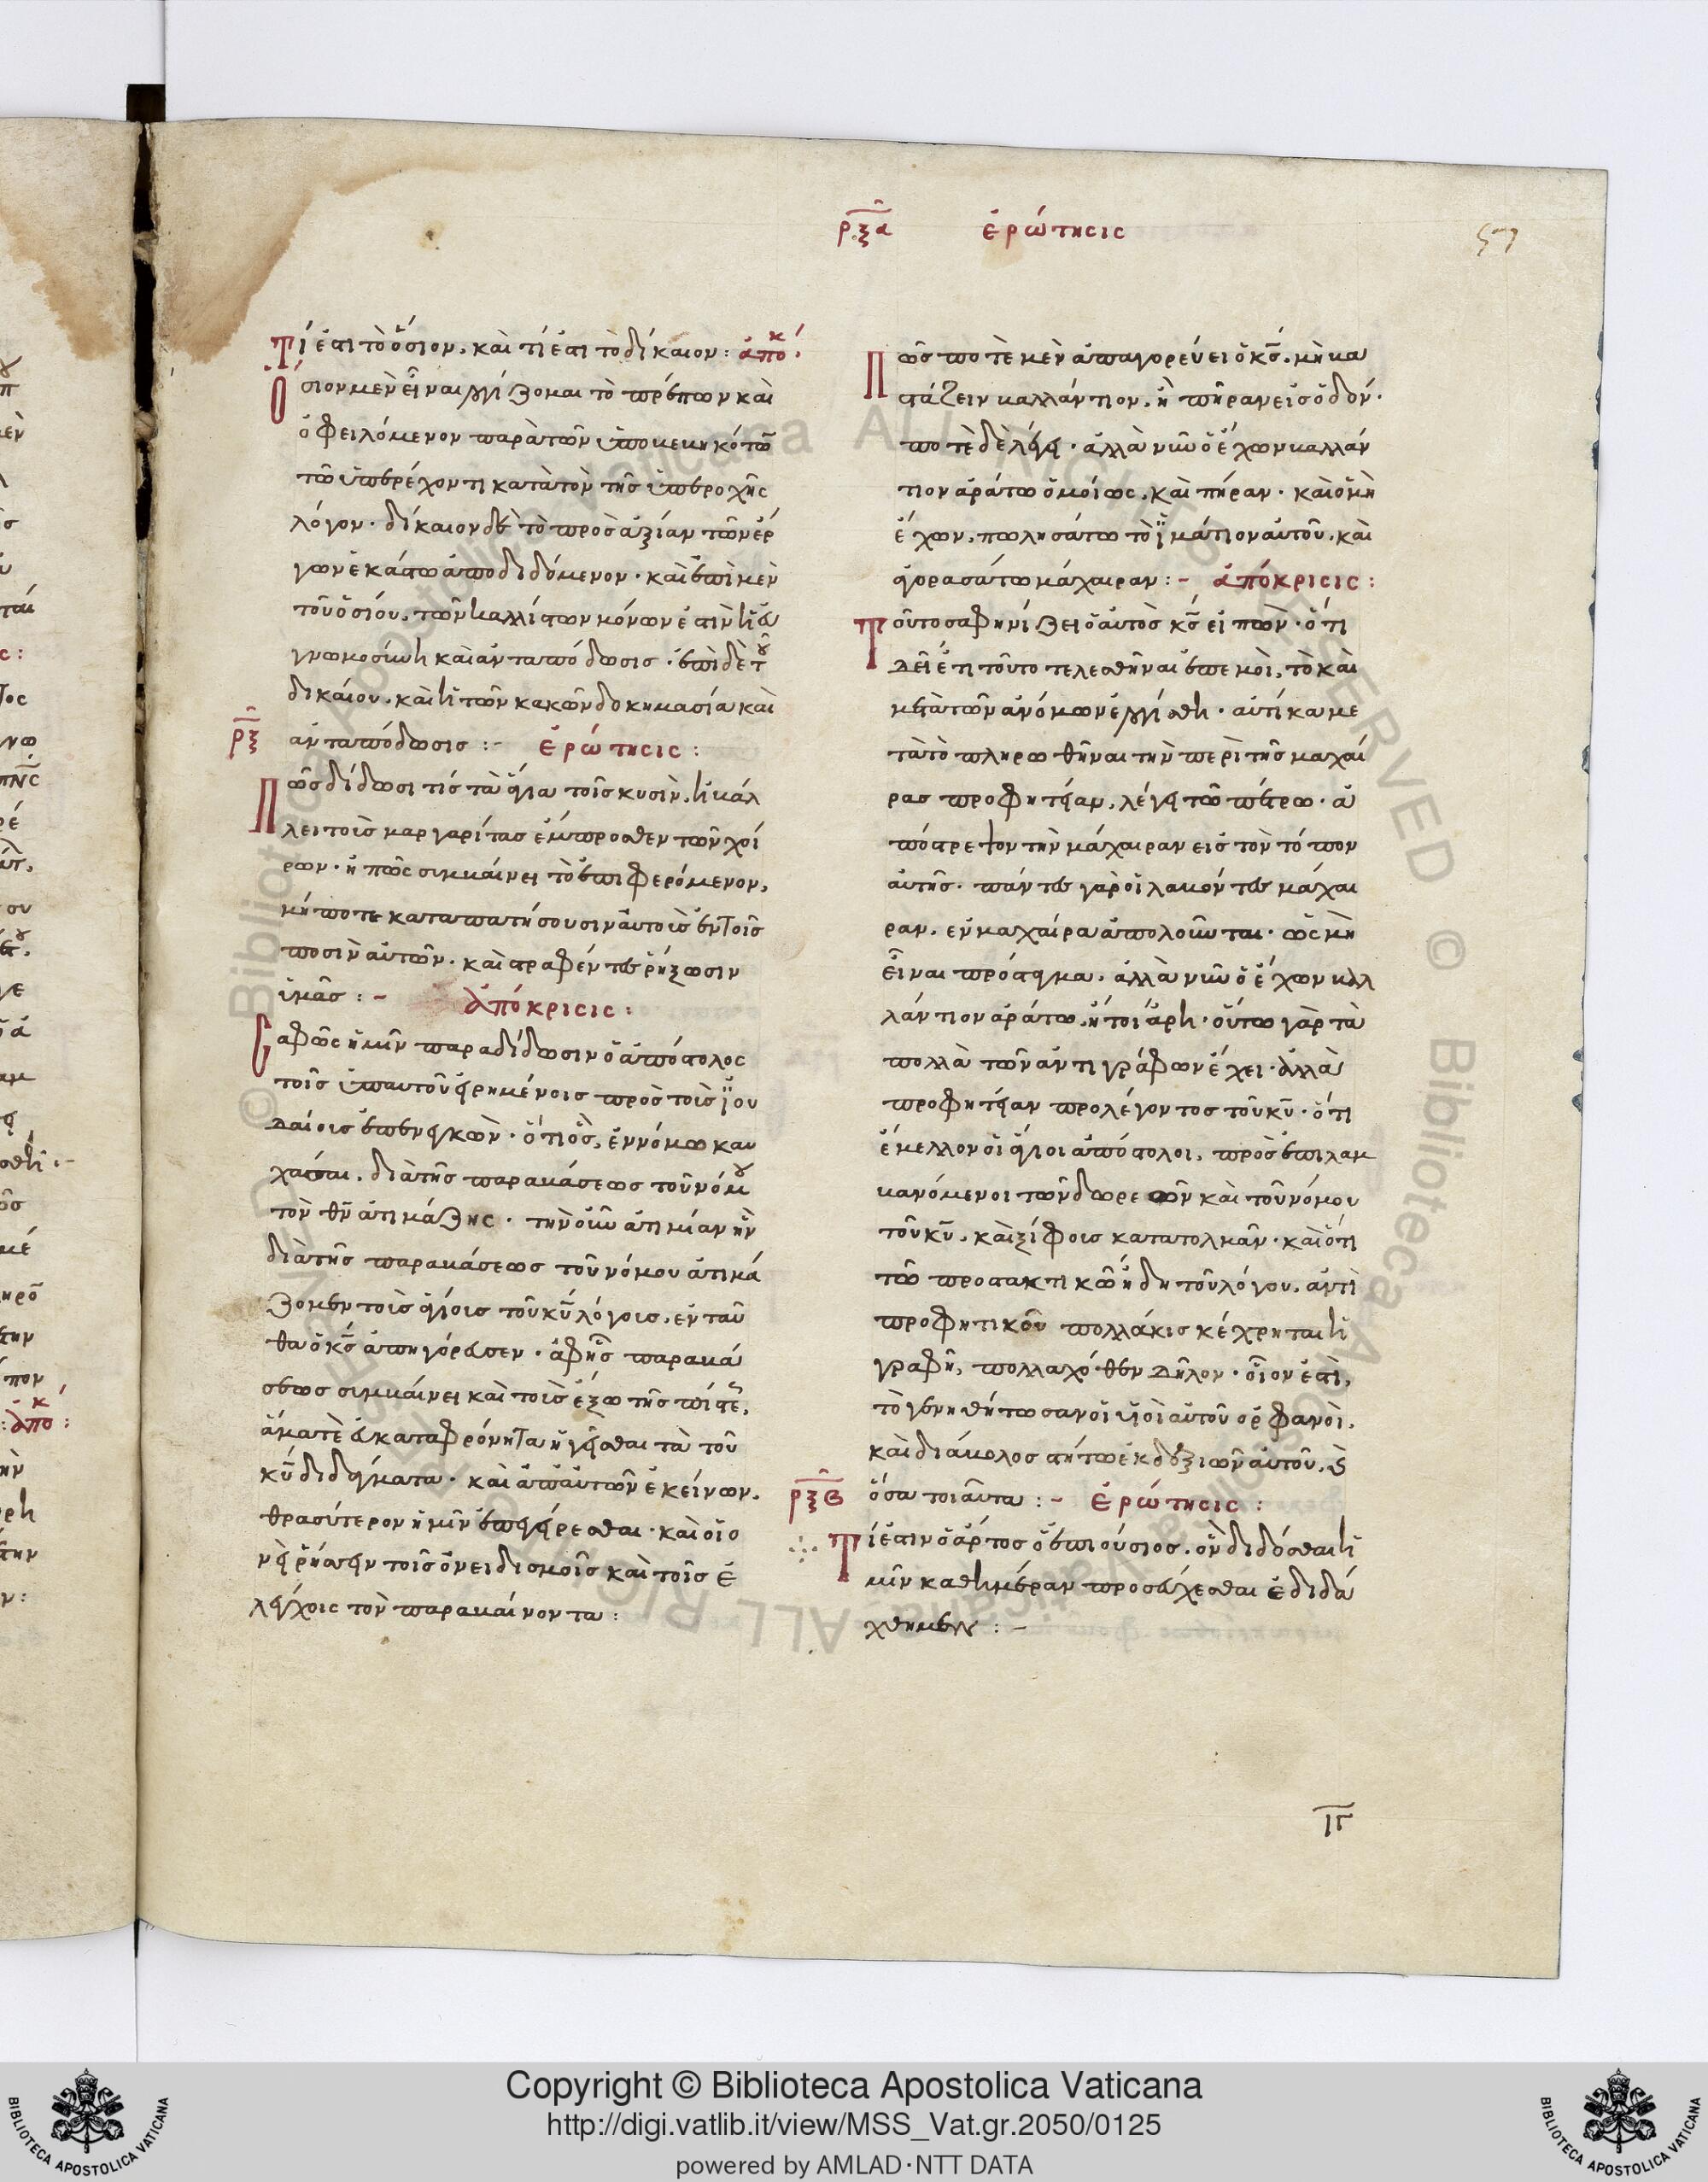 ρξα ἐρώτησις
57
Τί ἐστι τὸ ὅσιον, καὶ τί ἐστι τὸ δίκαιον : ἀποκ
Ὅσιον μὲν εἶναι λογίζομαι τὸ πρέπων καὶ
ὀφειλόμενον παρὰ τῶν ὑποβεβηκότων
τῶ ὑπερέχοντι κατὰ τὸν τῆς ὑπεροχῆς
λόγον · δίκαιον δὲ τὸ πρὸς ἀξίαν τῶν ἔρ
γων ἑκάστω ἀποδιδόμενον · καὶ ἐπὶ μὲν
τοῦ ὁσίου, τῶν καλλίστων μόνων ἐστὶν ἡ εὐ
γνωμοσύνη καὶ ἀνταπόδωσις · ἐπὶ δὲ τοῦ
δικαίου, καὶ ἡ τῶν κακῶν δοκημασία καὶ
ρξ ἀνταπόδωσις :- ἐρώτησις :
Πῶς δίδωσι τίς τὰ ἅγια τοῖς κυσὶν, ἢ βάλ
λει τοὺς μαργαρίτας ἔμπροσθεν τῶν χοί
ρων · ἢ πῶς συμβαίνει τὸ ἐπιφερόμενον,
μήποτε καταπατήσουσιν αὐτοὺς ἐν τοῖς
ποσὶν αὐτῶν · καὶ στραφέντες ῥήξωσιν
ὑμᾶς :- ἀπόκρισις :
Σαφῶς ἡμῖν παραδίδωσιν ὁ ἀπόστολος
τοῖς ὑπ αυτοῦ εἰρημένοις πρὸς τοὺς ἰου
δαίους ἐπενεγκὼν · ὅτι ὃς, ἐν νόμω καυ
χᾶσαι, διὰ τῆς παραβάσεως τοῦ νόμου
τὸν θν ἀτιμάζης · τὴν οὖν ἀτιμίαν ἣν
διὰ τῆς παραβάσεως τοῦ νόμου ἀτιμά
ζομεν τοὺς ἁγίους τοῦ κυ λόγους, ἐνταῦ
θα ὁ κς ἀπηγόρευσεν · ἀφ ἧς παραβά
σεως συμβαίνει καὶ τοὺς ἔξω τῆς πίστεως,
ἅμα τὲ εὐκαταφρόνητα ἡγεῖσθαι τὰ τοῦ
κυ διδάγματα · καὶ ἀπ αὐτῶν ἐκείνων,
θρασύτερον ἡμῖν ἐπεγείρεσθαι · καὶ οἱο
νεὶ ῥήσσειν τοῖς ὀνειδισμοῖς καὶ τοῖς ἐ
λέγχοις τὸν παραβαίνοντα :
Πῶς ποτὲ μὲν ἀπαγορεύει ὁ κς, μὴ βα
στάζειν βαλλάντιον, ἢ πῆραν εἰς ὁδόν ·
ποτὲ δὲ λέγει · ἀλλὰ νῦν ὁ ἔχων βαλλάν
τιον ἀράτω ὁμοίως, καὶ πήραν · καὶ ὁ μὴ
ἔχων, πωλησάτω τὸ ἱμάτιον αὐτοῦ, καὶ
ἀγορασάτω μάχαιραν :- ἀπόκρισις :
Τοῦτο σαφηνίζει ὁ αὐτὸς κς εἰπὼν · ὅτι
δεῖ ἔτι τοῦτο τελεσθῆναι ἐπ ἐμοὶ, τὸ καὶ
μετὰ τῶν ἀνόμων ἐλογίσθη · αὐτίκα με
τὰ τὸ πληρωθῆναι τὴν περὶ τῆς μαχαί
ρας προφητείαν, λέγει τῶ πέτρω · ἀ
πόστρεψον τὴν μάχαιραν εἰς τὸν τόπον
αὐτῆς · πάντες γὰρ οἱ λαβόντες μάχαι
ραν, ἐν μαχαίρα ἀπολοῦνται · ὡς μὴ
εἶναι πρόσταγμα, ἀλλὰ νῦν ὁ ἔχων βαλ
λάντιον ἀράτω, ἤτοι ἄρῃ · οὕτω γὰρ τὰ
πολλὰ τῶν ἀντιγράφων ἔχει · ἀλλὰ
προφητείαν προλέγοντος τοῦ κυ · ὅτι
ἔμελλον οἱ ἅγιοι ἀπόστολοι, πρὸς ἐπιλαμ
βανόμενοι τῶν δωρεῶν καὶ τοῦ νόμου
τοῦ κυ, καὶ ξίφους κατατολμᾶν · καὶ ὅτι
τῶ προστακτικῶ ἤδη τοῦ λόγου, ἀντὶ
προφητικοῦ πολλάκις κέχρηται ἡ
γραφὴ, πολλαχόθεν δῆλον · οἷον ἐστὶ,
τὸ γενηθήτωσαν οἱ υἱοὶ αὐτοῦ ὀρφανοὶ,
καὶ διάβολος στήτω ἐκ δεξιῶν αὐτοῦ, καὶ
ρξβ ὅσα τοιαῦτα :- ἐρώτησις :
Τί ἐστιν ὁ ἄρτος ὁ ἐπιούσιος, ὃν δίδοσθαι ἡ
μῖν καθ ημέραν προσεύχεσθαι ἐδιδά
χθημεν :-
ιγ
Copyright © Biblioteca Apostolica Vaticana
http://digi.vatlib.it/view/MSS_Vat.gr.2050/0125
powered by AMLAD·NTT DATA